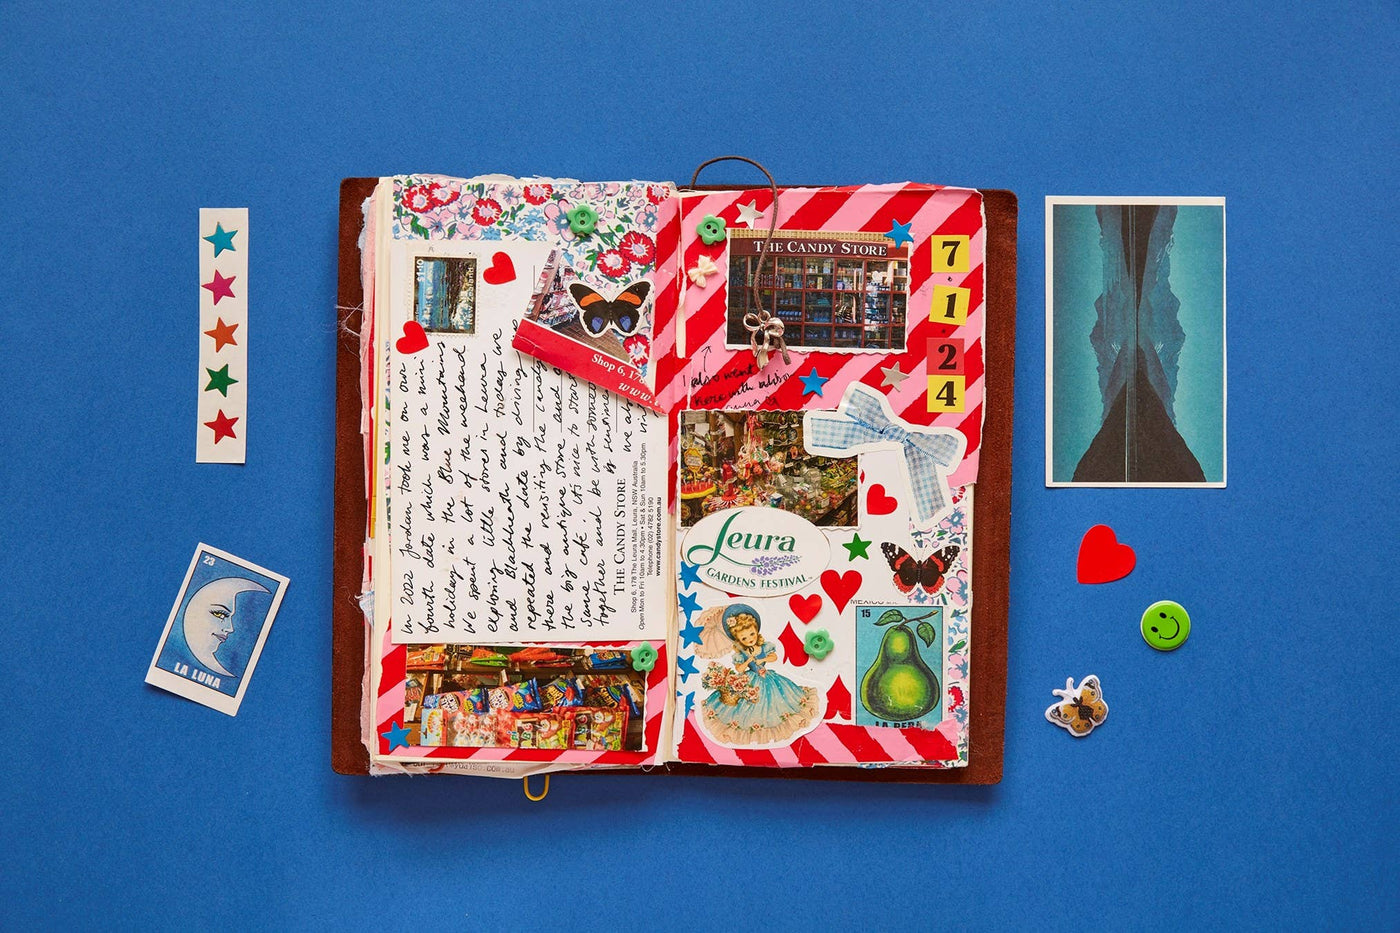 In 2022 Jordan took me on our
fourth date which was a mini
holiday in the Blue Mountains
We spent a lot of the weekend
exploring little stores in Leura
and Blackheath and today we
repeated the date by driving
there and revisiting the candy
the big antique store and
same café. it's nice to
together and be with
is
we
THE CANDY STORE
Shop 6, 178 The Leura Mall, Leura, NSW Australia
Open Mon to Fri 10am to 4.30pm • Sat & Sun 10am to 5.30pm
Telephone (02) 4782 5190
www.candystore.com.au
Shop 6, 178
www.
THE CANDY STORE
7
1
2
4
I also went
here with
Leura
GARDENS FESTIVAL
15
LA PERA
23
LA LUNA